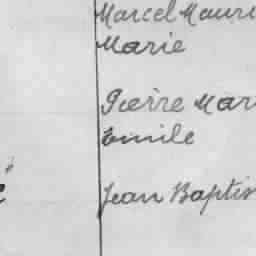 Marcel Mauri
Marie
Pierre Mar
Emile
Jean Baptis